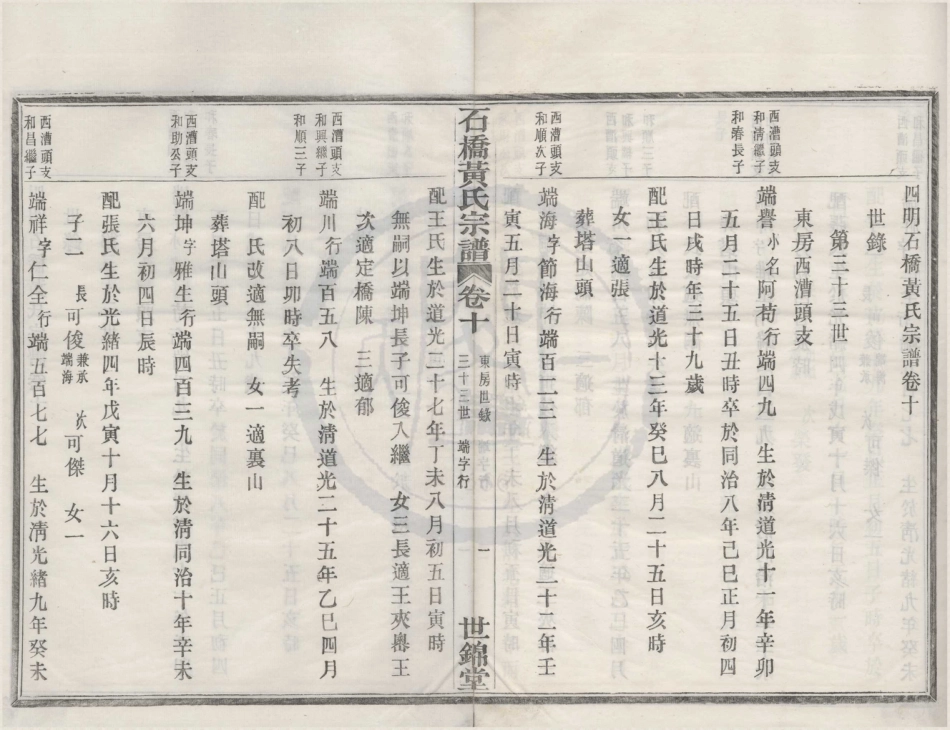 四明石橋黃氏宗譜卷十
世錄
第三十三世
東房西漕頭支
西漕頭支
和清繼子
和春長子
端譽小名阿苟行端四九 生於清道光十一年辛卯
五月二十五日丑時卒於同治八年己巳正月初四
日戌時年三十九歲
配王氏生於道光十三年癸巳八月二十五日亥時
女一適張
葬塔山頭
西漕頭支
和順次子
端海字節海行端百二三 生於清道光二十二年壬
寅五月二十日寅時
石橋黃氏宗譜 卷十
東房世錄
三十三世 端字行
一
世錦堂
配王氏生於道光二十七年丁未八月初五日寅時
無嗣以端坤長子可俊入繼 女三長適王夾嶴王
次適定橋陳 三適郁
西漕頭支
和興繼子
和順三子
端川行端百五八 生於清道光二十五年乙巳四月
初八日卯時卒失考
配 氏改適無嗣 女一適裏山
葬塔山頭
西漕頭支
和助公子
端坤字雅生行端四百三九 生於清同治十年辛未
六月初四日辰時
配張氏生於光緒四年戊寅十月十六日亥時
子二 長可俊兼承端海 次可傑 女一
西漕頭支
和昌繼子
端祥字仁全行端五百七七 生於清光緒九年癸未